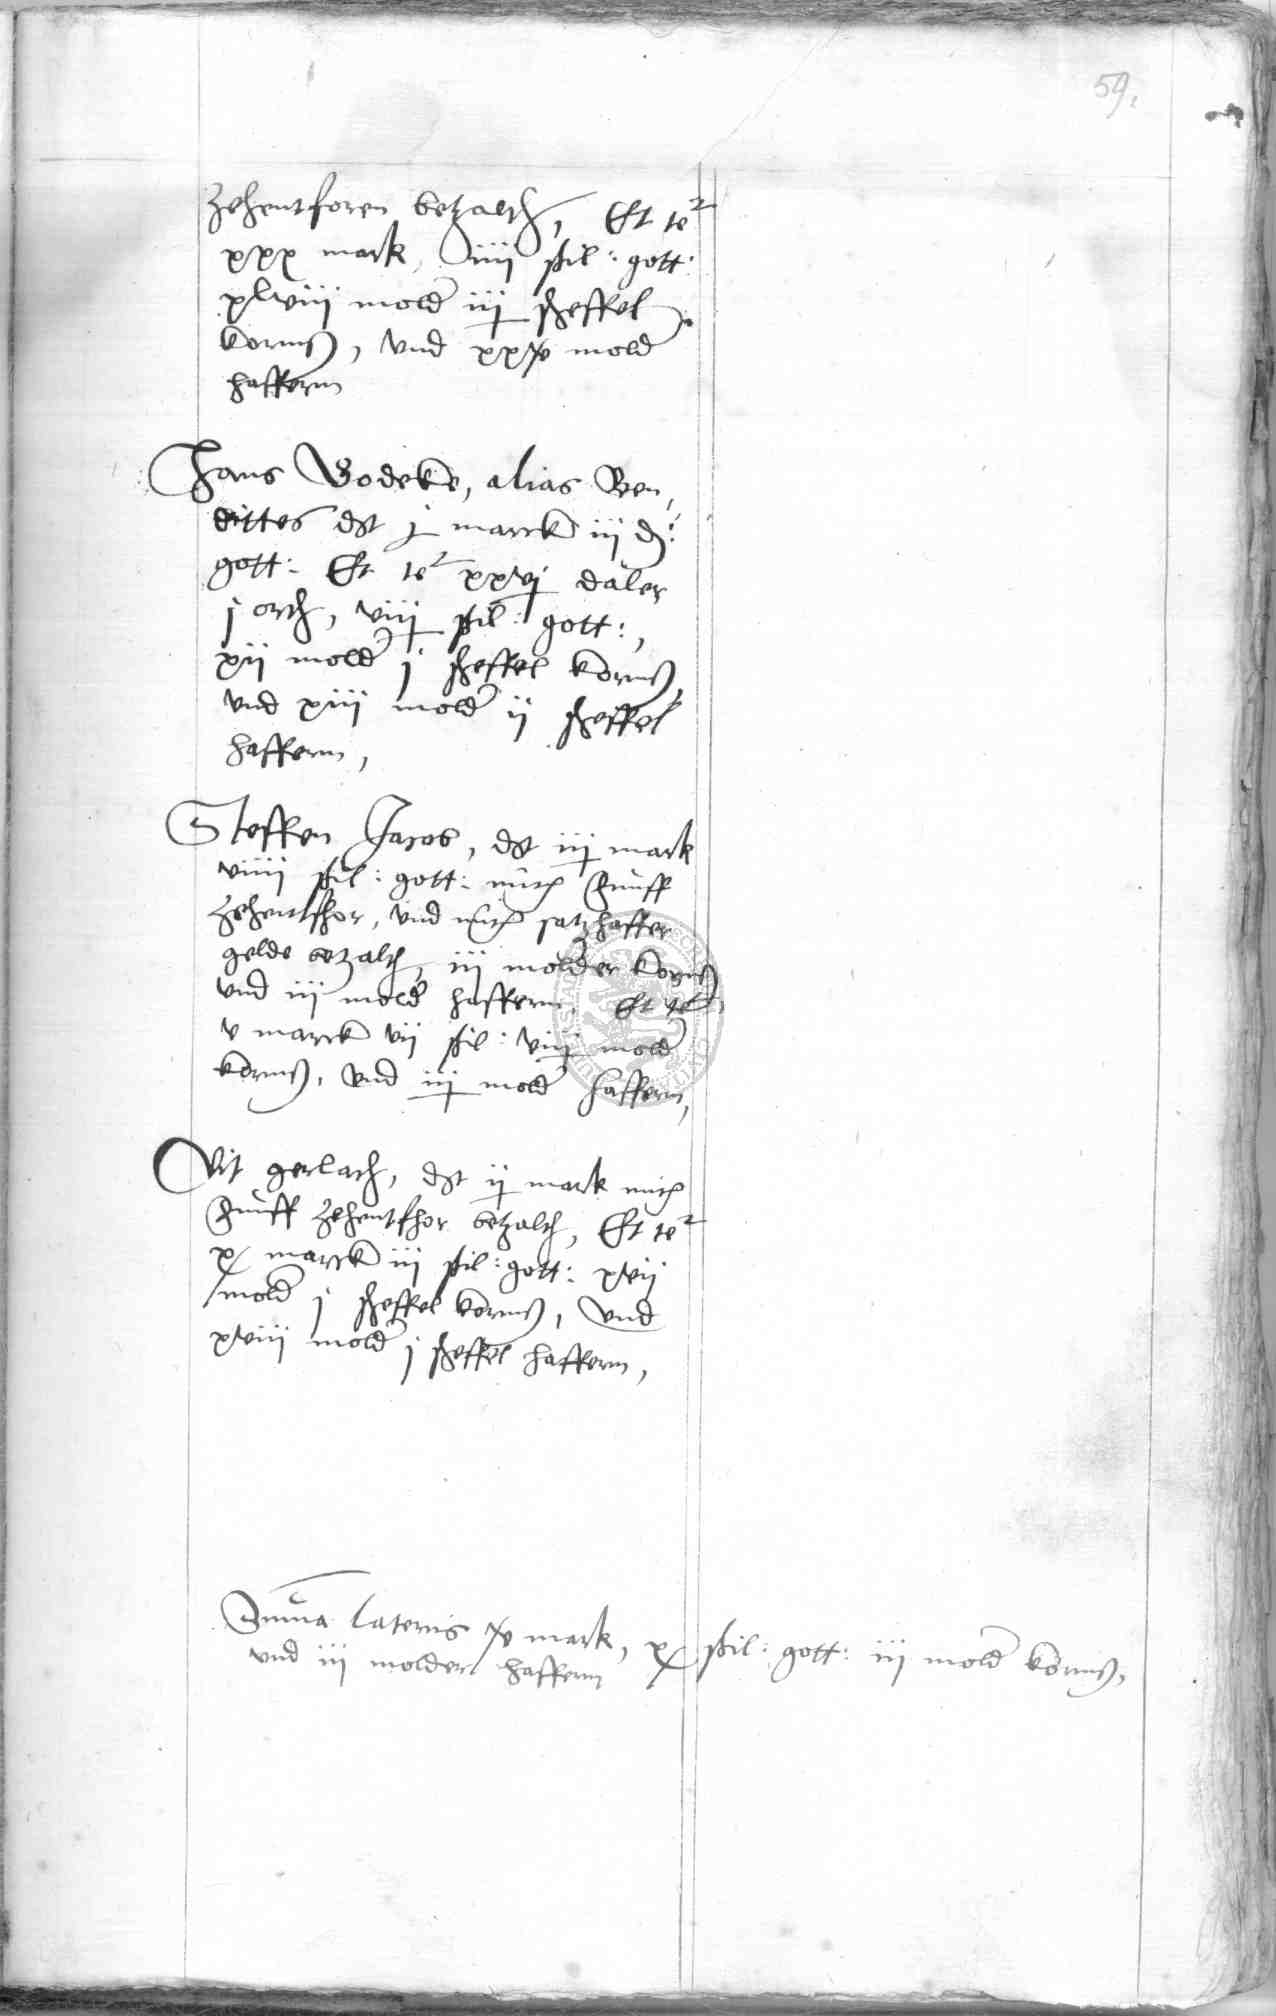 59.
zehentforen betzalth, Est te²
xxx mark, iiii ßil: gott:
xlviii mold iij scheffel
korns, vnd xxv mold
haffern
Hans Godeke, alias Ben,
dittes dt j marck iii d:
gott: Est te² xxvj daler
j orth, viij ßil: gott:,
xii mold j scheffel korns,
vnd xiii mold ij scheffel
haffern,
Steffen Jacob, dt iij mark
viiii ßil: gott: mith funff
zehentfhor, vnd mith satzhaffer
gelde betzalth, iii molder korns
vnd iii mold haffern, Est te²,
v marck vii ßil: viij mold
korns, vnd iij mold haffern,
Vit gerlach, dt ij mark mith
funff zehentfhor betzalth, Est te²
x marck iii ßil: gott: xvii
mold j scheffel korns, vnd
xviii mold j scheffel haffern,
Suma lateris xv mark, x ßil: gott: iii mold korns,
vnd iii molder haffern